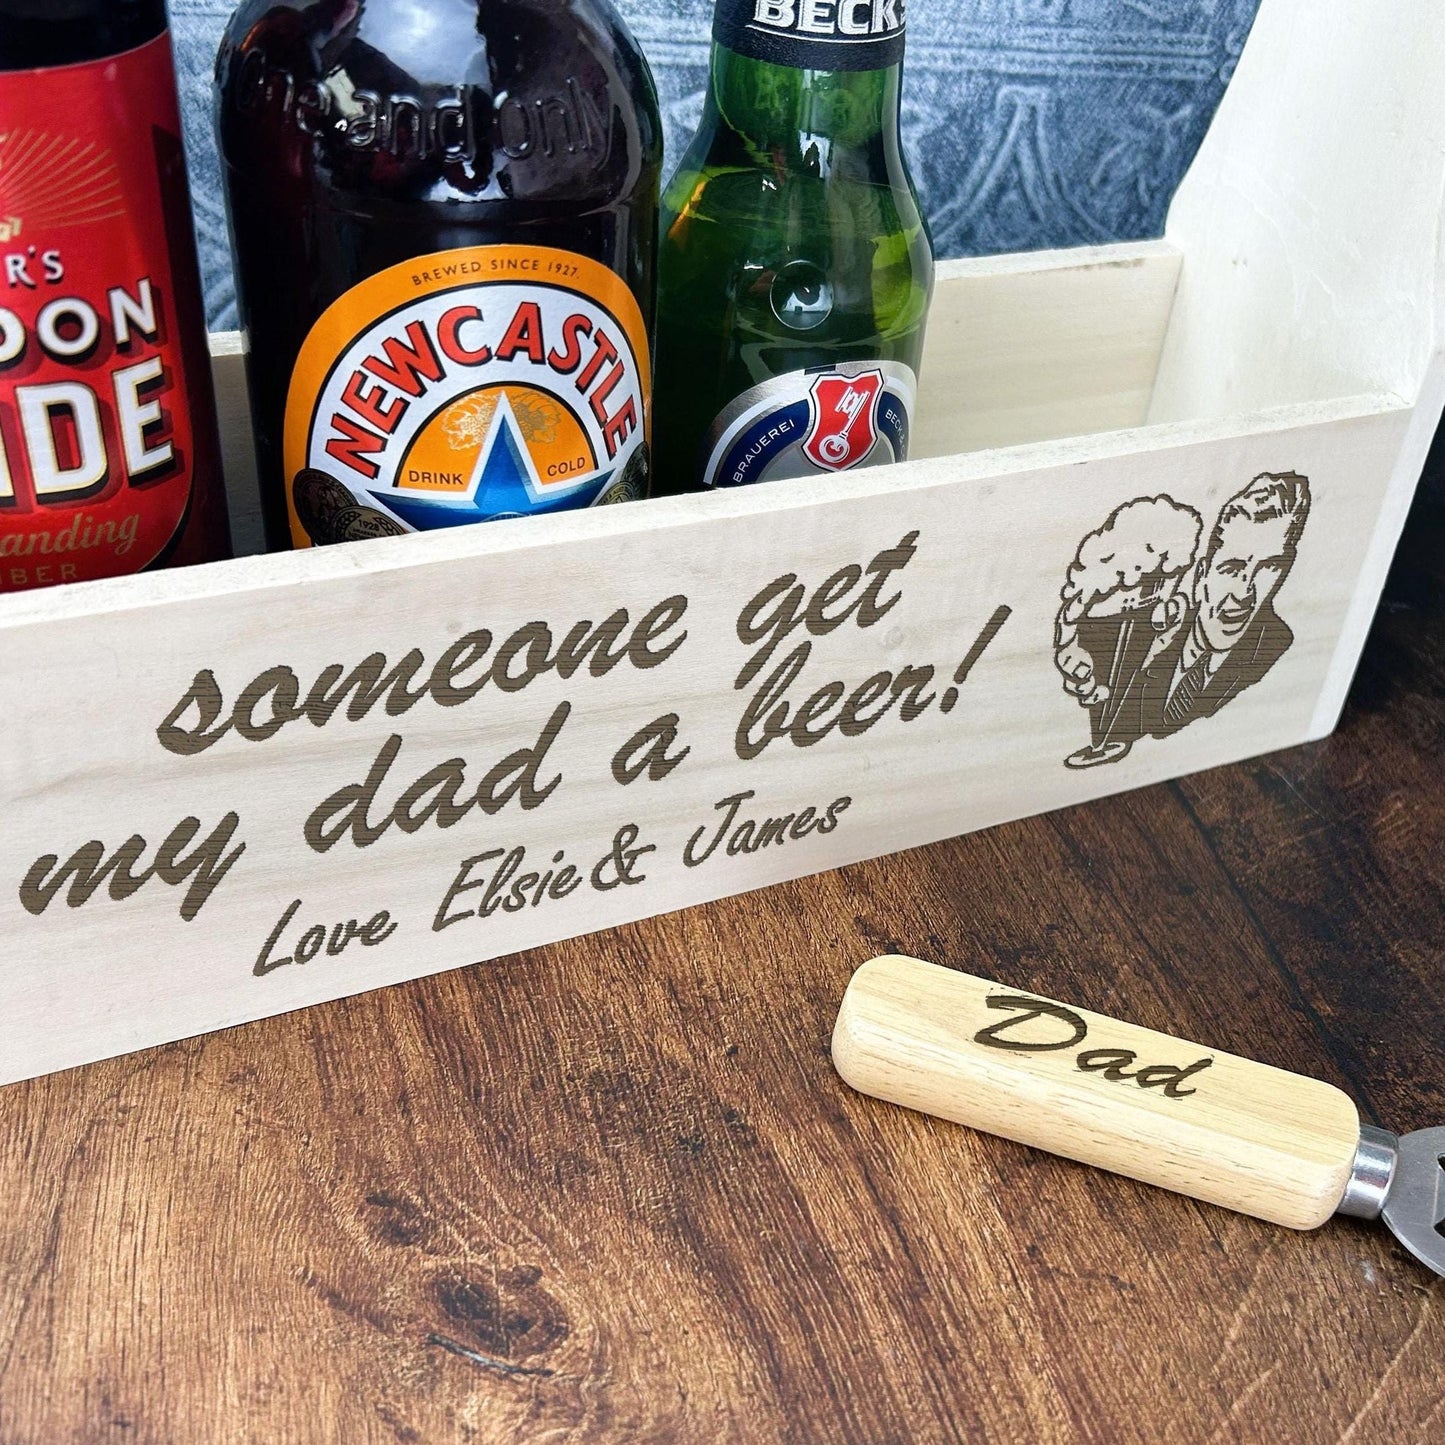 BECK'S
one and only
BREWED SINCE 1927.
NEWCASTLE
DRINK COLD
1928
BRAUEREI BECK
G
R'S
DON
IDE
anding
BER
someone get
my dad a beer!
Love Elsie & James
Dad